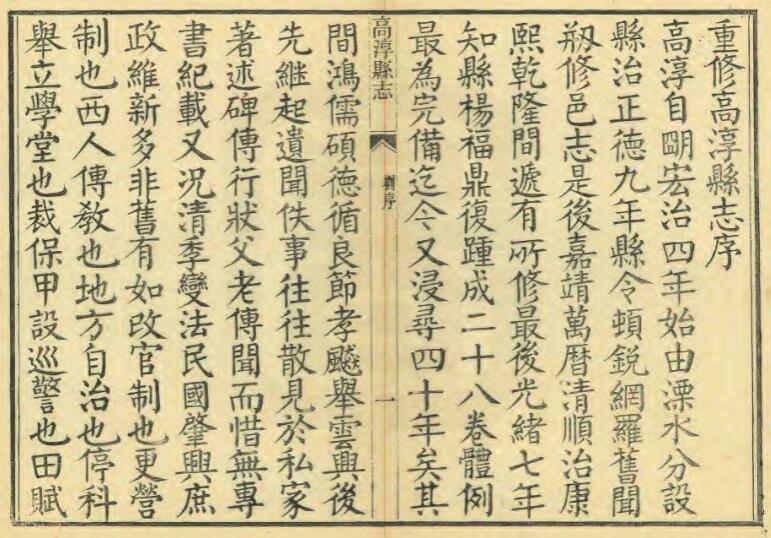 重修高淳縣志序
高淳自明宏治四年始由溧水分設
縣治正德九年縣令頓銳網羅舊聞
刱修邑志是後嘉靖萬曆清順治康
熙乾隆間遞有所修最後光緒七年
知縣楊福鼎復踵成二十八卷體例
最為完備迄今又浸尋四十年矣其
高淳縣志
劉序
一
間鴻儒碩德循良節孝飈舉雲興後
先継起遺聞佚事往往散見於私家
著述碑傳行狀父老傳聞而惜無專
書紀載又况清季變法民國肇興庶
政維新多非舊有如改官制也更營
制也西人傳敎也地方自治也停科
舉立學堂也裁保甲設巡警也田賦